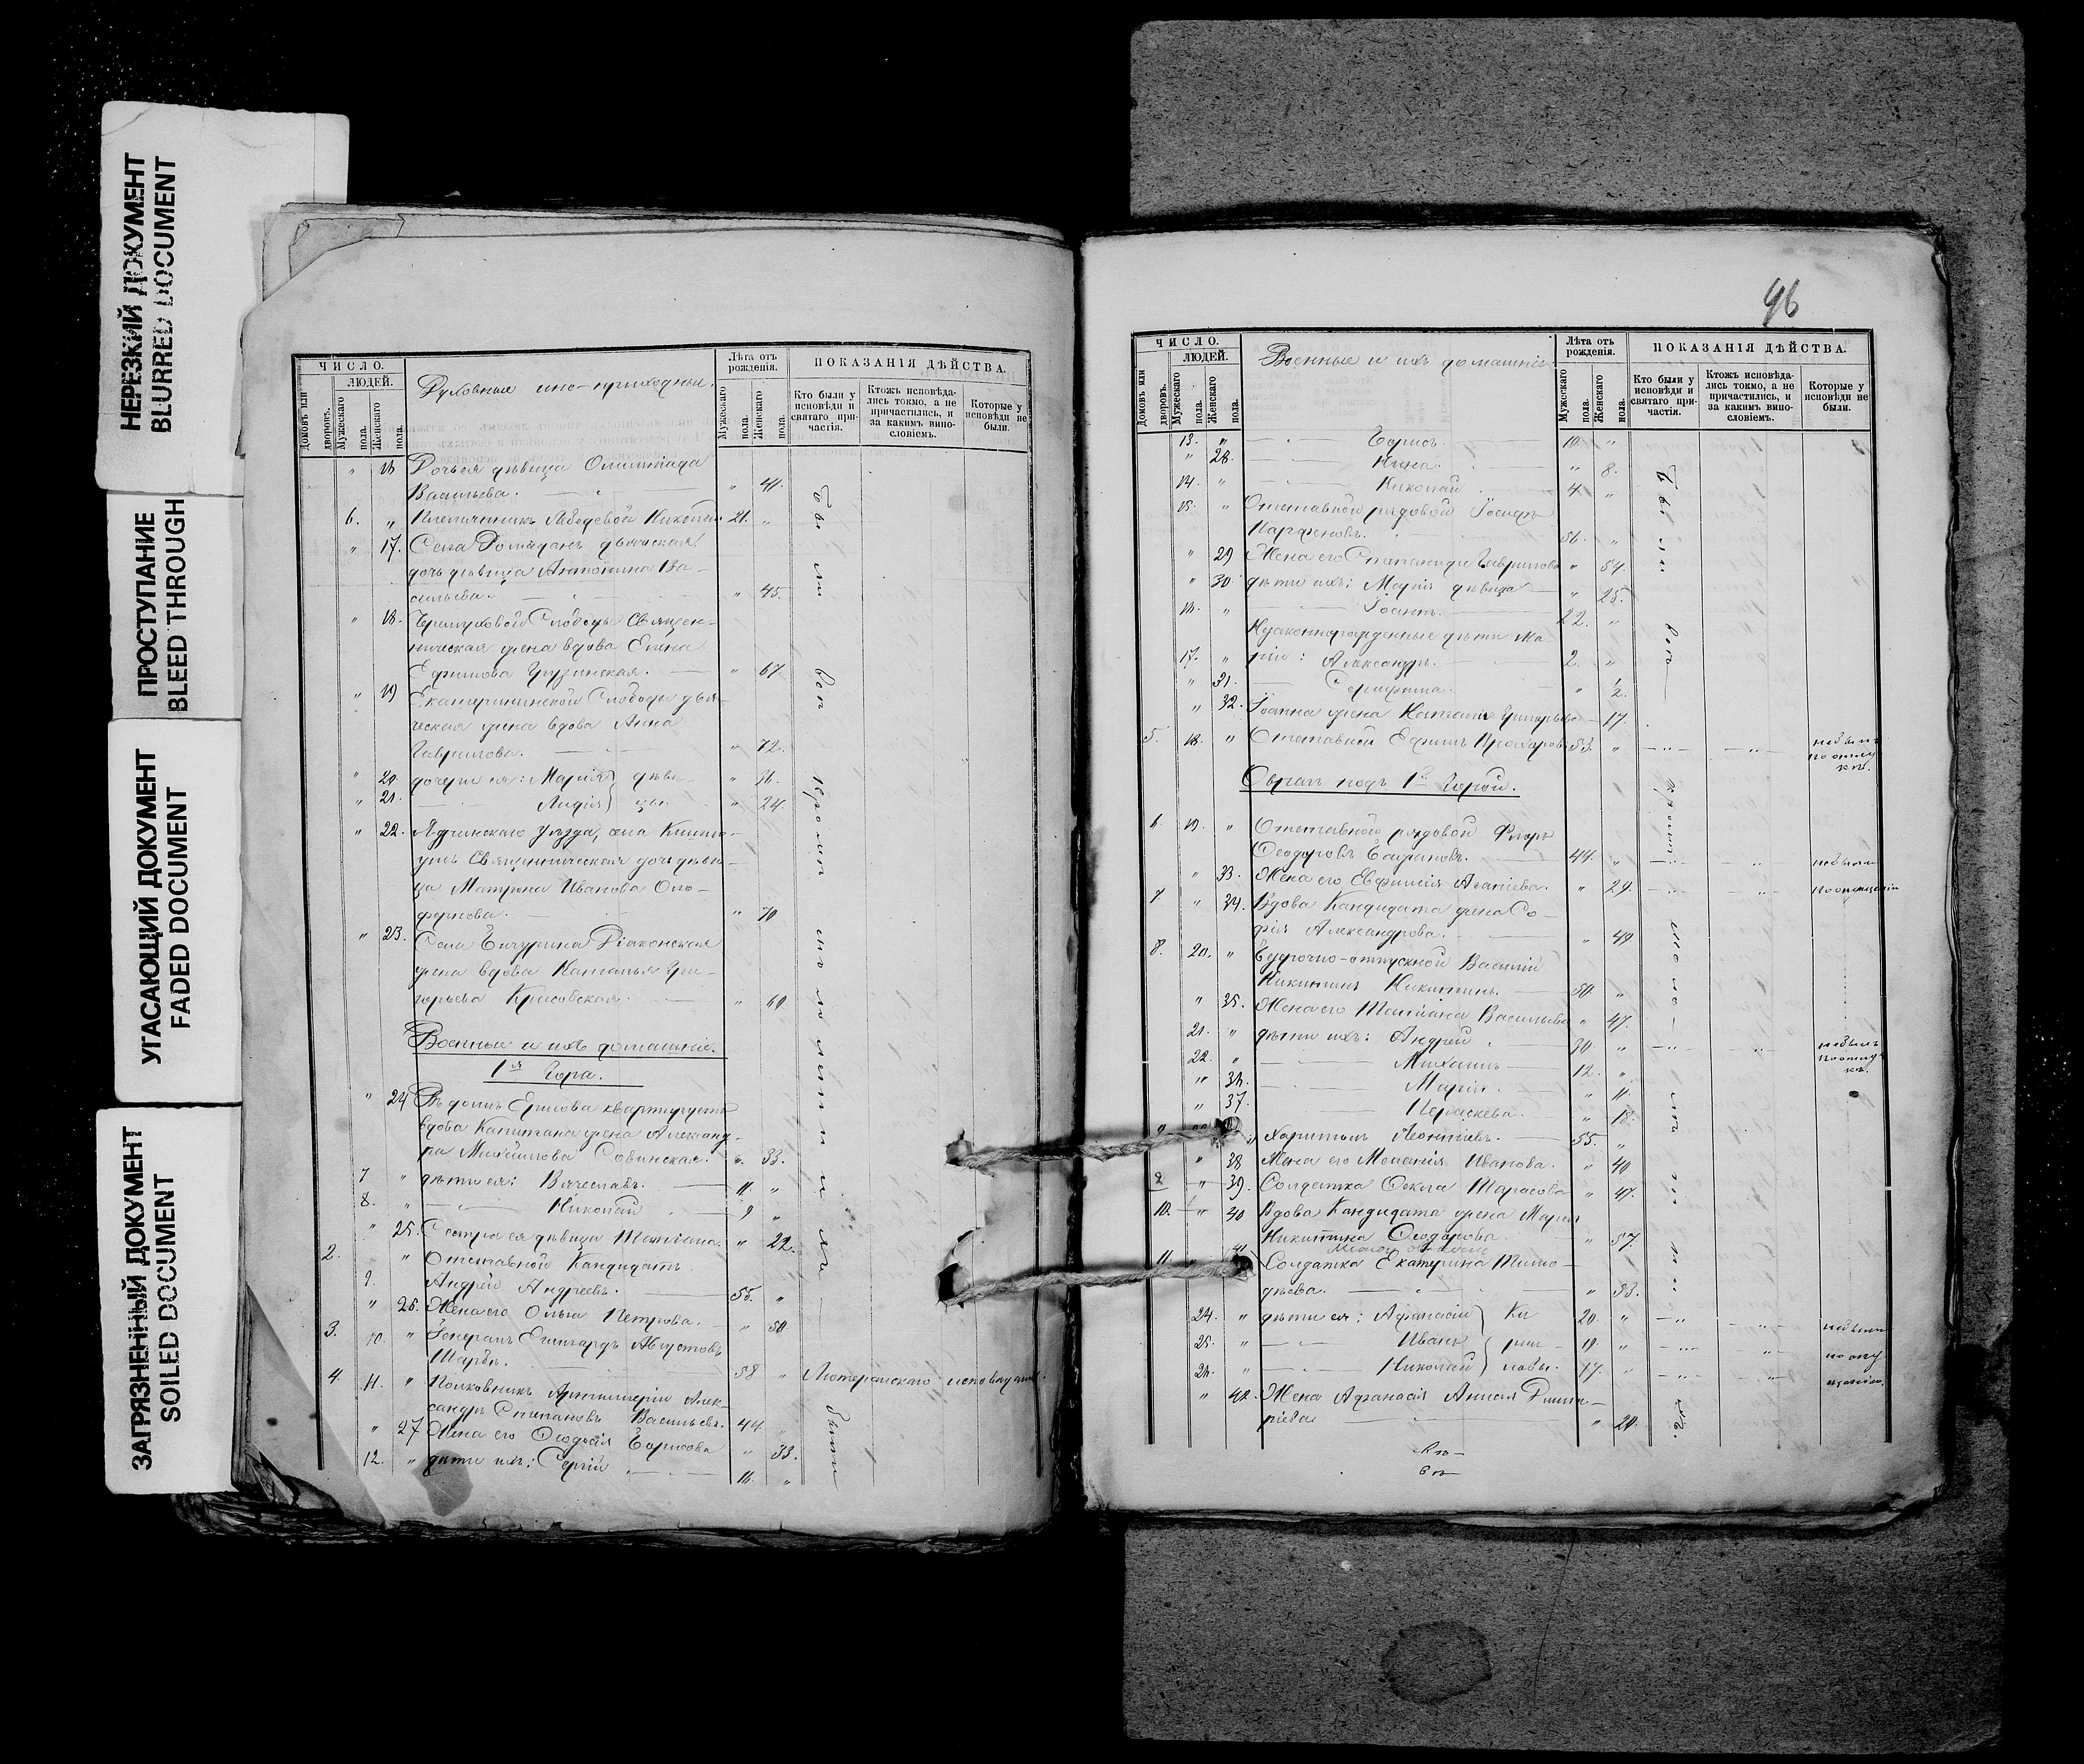 НЕРЕЗКИЙ ДОКУМЕНТ
BLURRED DOCUMENT
ПРОСТУПАНИЕ
BLEED THROUGH
УГАСАЮЩИЙ ДОКУМЕНТ
FADED DOCUMENT
ЗАГРЯЗНЕННЫЙ ДОКУМЕНТ
SOILED DOCUMENT
ЧИСЛО.
ЛЮДЕЙ.
Домовъ или дворовъ.
Мужескаго пола.
Женскаго пола.
Духовные ино-приходные.
Лѣта отъ рожденія.
Мужескаго пола.
Женскаго пола.
ПОКАЗАНІЯ ДѢЙСТВА.
Кто были у исповѣди и святаго причастія.
Ктожъ исповѣдались токмо, а не причастились, и за какимъ винословіемъ.
Которые у исповѣди не были.
" 16 Дочь ея дѣвица Олимпіада
Васильева. " 41.
6. " Племянникъ Лебедевой Николай 21. "
" 17. Села дьячская
дочь дѣвица Антонина Ва-
сильева. " 45.
" 18. Слободы Священ-
ническая жена вдова Елена
Ефимова Грузинская. " 67
" 19 Екатерининской Слободы дья-
ческая жена вдова Анна
Гаврилова. " 72.
" 20 дочери ея: Марія } дѣви- " 36.
" 21. Лидія } цы. " 24.
" 22. уѣзда, села
Священническая дочь дѣви-
ца Матрона Иванова
" 70
" 23. Села Бичурина Діаконская
жена вдова Наталья Гри-
горьева Крисовская. " 60
Военные и ихъ домашніе.
1я Гора.
" 24 Въ домѣ Ермова квартируетъ
вдова Капитана жена Александ-
ра Михайлова Совинская. " 33.
7 " дѣти ея: Вячеславъ. 11. "
8. " Николай 9 "
" 25. Сестра ея дѣвица Татіана. " 22.
2. 9. " Отставной Кандидатъ
Андрей Андреевъ. 55. "
" 26. Жена его Ольга Петрова. " 50
3. 10. " Генералъ Августовъ
58 " Лютеранскаго исповѣданія.
4. 11. " Полковникъ Артиллеріи Алек-
сандръ Степановъ Васильевъ. 44. "
" 27 Жена его Ѳеодосія Борисова " 33.
12. " дѣти ихъ: Сергій 16. "
Были всѣ кромѣ
96
ЧИСЛО.
ЛЮДЕЙ.
Домовъ или дворовъ.
Мужескаго пола.
Женскаго пола.
Военные и ихъ домашніе
Лѣта отъ рожденія.
Мужескаго пола.
Женскаго пола.
ПОКАЗАНІЯ ДѢЙСТВА.
Кто были у исповѣди и святаго причастія.
Ктожъ исповѣдались токмо, а не причастились, и за какимъ винословіемъ.
Которые у исповѣди не были.
13. " Борисъ 10. "
" 28. Нина. " 8.
14. " Николай 4. "
15. " Отставной рядовой Іосифъ
Парфеновъ. 56. "
" 29 Жена его Степанида Гаврилова " 54.
" 30. дѣти ихъ: Марія дѣвица " 25.
16. " Іоаннъ 22. "
Незаконнорожденные дѣти Ма-
17. " ріи: Александръ. 2. "
" 31. Серафима. " ½.
" 32. Іоанна жена Наталія Григорьева 17.
5. 18. " Отставной Ефимъ Прохоровъ 53. " не былъ по отлучкѣ.
Оврагъ подъ 1й Горой.
6 19. " Отставной рядовой
Ѳеодоровъ 44. " не были
" 33. Жена его Евфимія Агапіева. " 24. по опущенію
7 " 34. Вдова Кандидата жена Со-
фія Александрова. " 49
8. 20. " Безсрочно-отпускной Василій
Никитинъ Никитинъ. 50. "
" 35. Жена его Татіана Васильева " 47.
21. " дѣти ихъ: Андрей 30. " не былъ по отлучкѣ.
22. " Михаилъ 12. "
" 36. Марія " 11.
" 37. Параскева. " 18.
" Харитонъ Леонтіевъ. 55. "
" 38 Жена его Меланія Иванова. " 40
" 39. Солдатка Ѳекла Тарасова " 47.
10. " 40 Вдова Кандидата жена Марія
Никитина Ѳеодорова. " 57.
11. 41 Солдатка Екатерина Тимо-
фѣева. " 53.
24. " дѣти ея: Афанасій } Ки 20. " не были
25. " Иванъ } рил- 19. " по опу
26. " Николай } ловы. 17. " щенію.
" 42. Жена Афанасія Анисія
" 20.
Были всѣ кромѣ